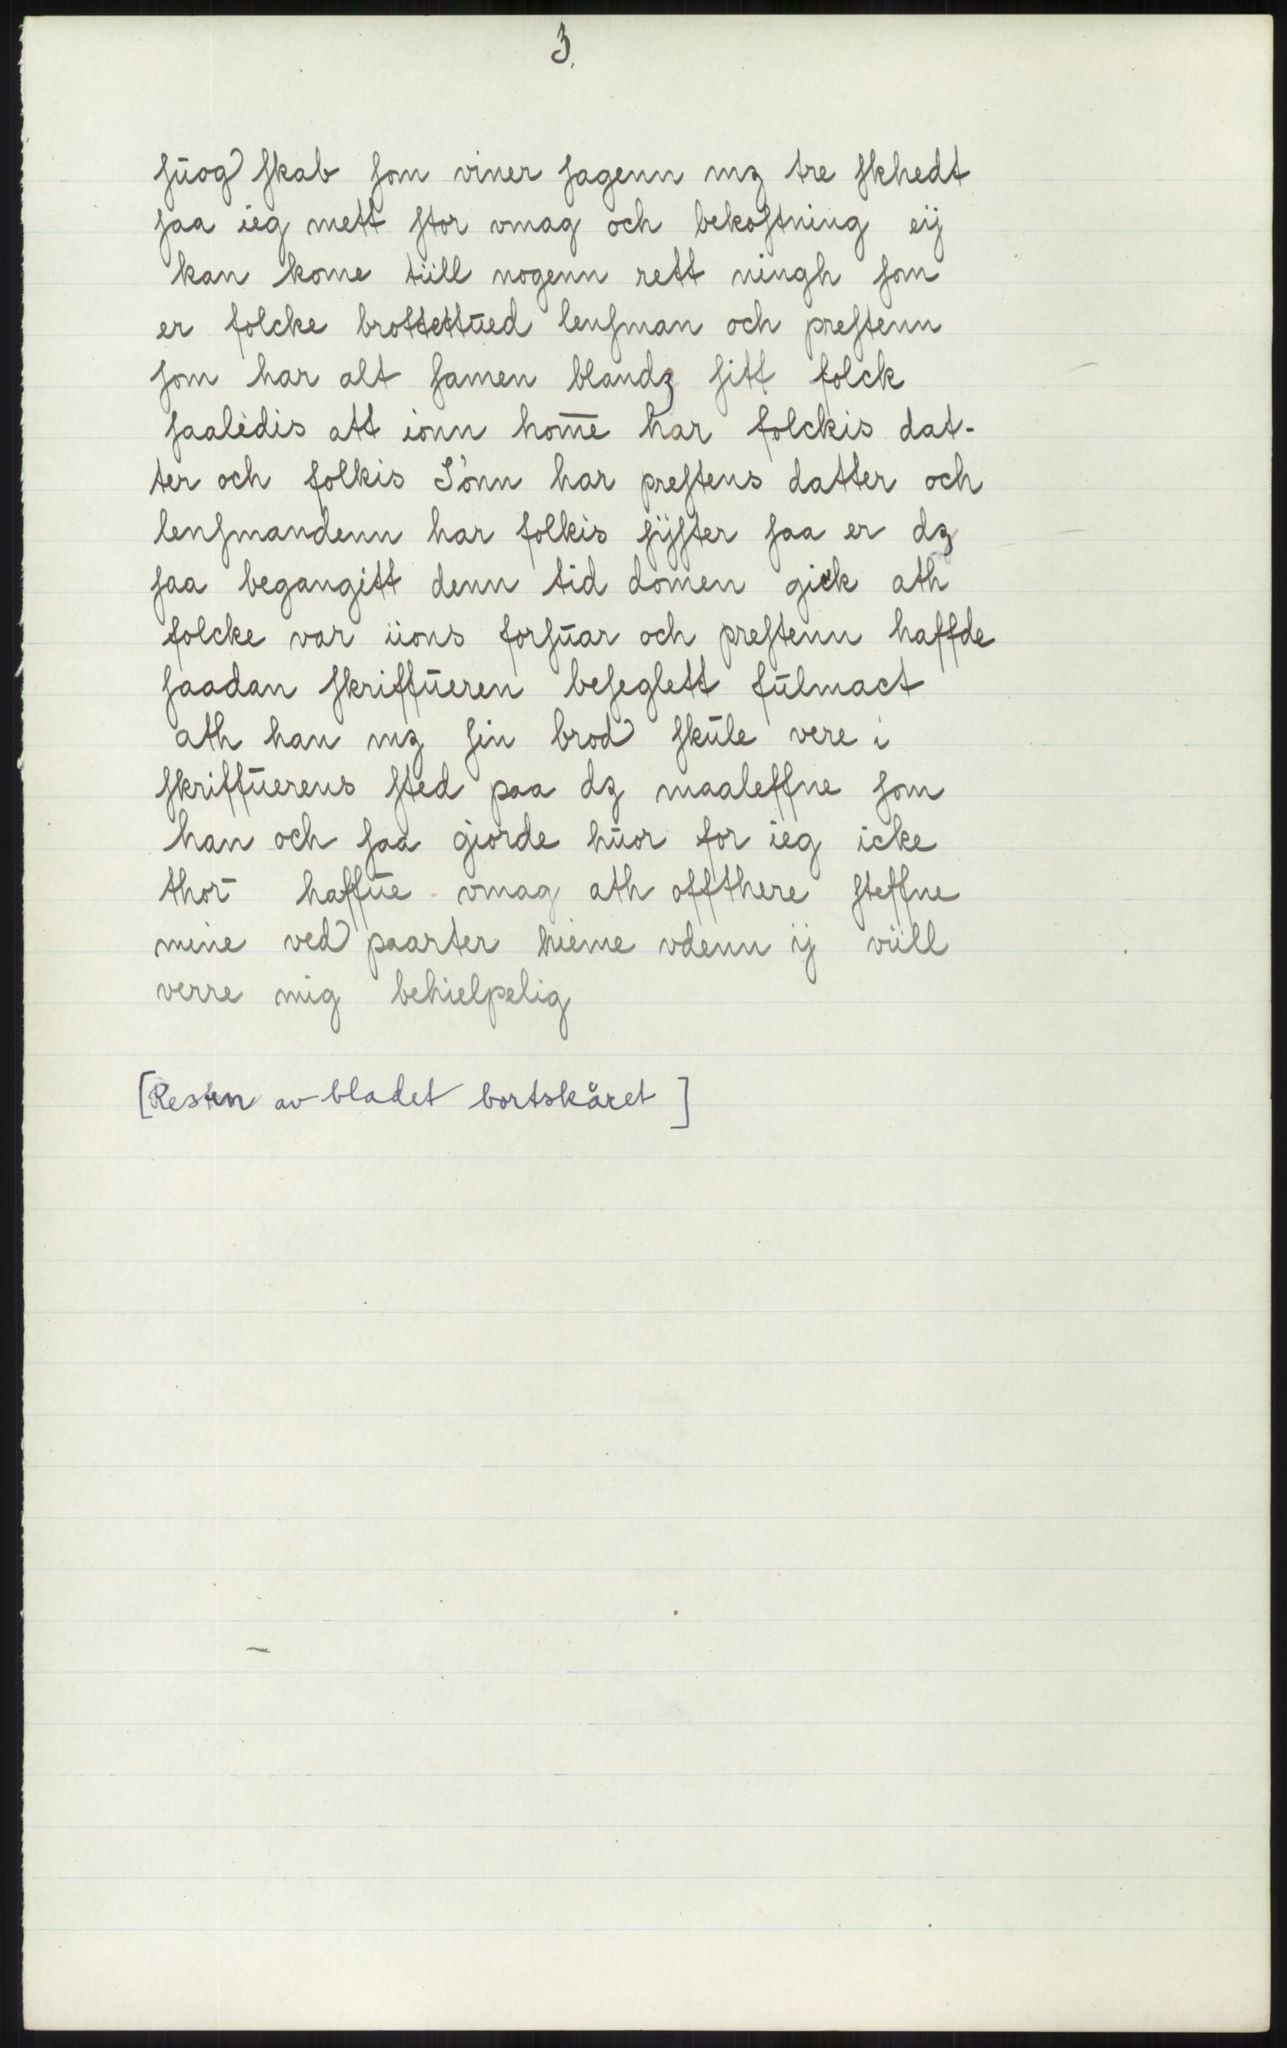 3.
ſuog skab ſom viner ſagenn mz tre ſkhedt
ſaa ieg mett ſtor vmag och bekoſtning eij
kan kome tüll nogenn rett ningh ſom
er folcke brottettūed lenſman och preſtenn
ſom har alt ſamen blandz ſitt folck
ſaaledis att ionn home har folckis dat-
ter och folkis Sónn har preſtens datter och
lenſmandenn har folkis ſÿſter ſaa er dz
ſaa begangitt denn tid domen gick ath
folcke var iions forſūar och preſtenn haffde
ſaadan ſkriffūeren beſeglett fūlmact
ath han mz ſin brod ſkūle vere i
ſkriffūerens ſted paa dz maaleffne ſom
han och ſaa giorde hūor for ieg icke
thor haffūe vmag ath offthere ſteffne
mine ved paarter hieme vdenn ij vüll
verre mig behielpelig
[Resten av bladet bortskåret]